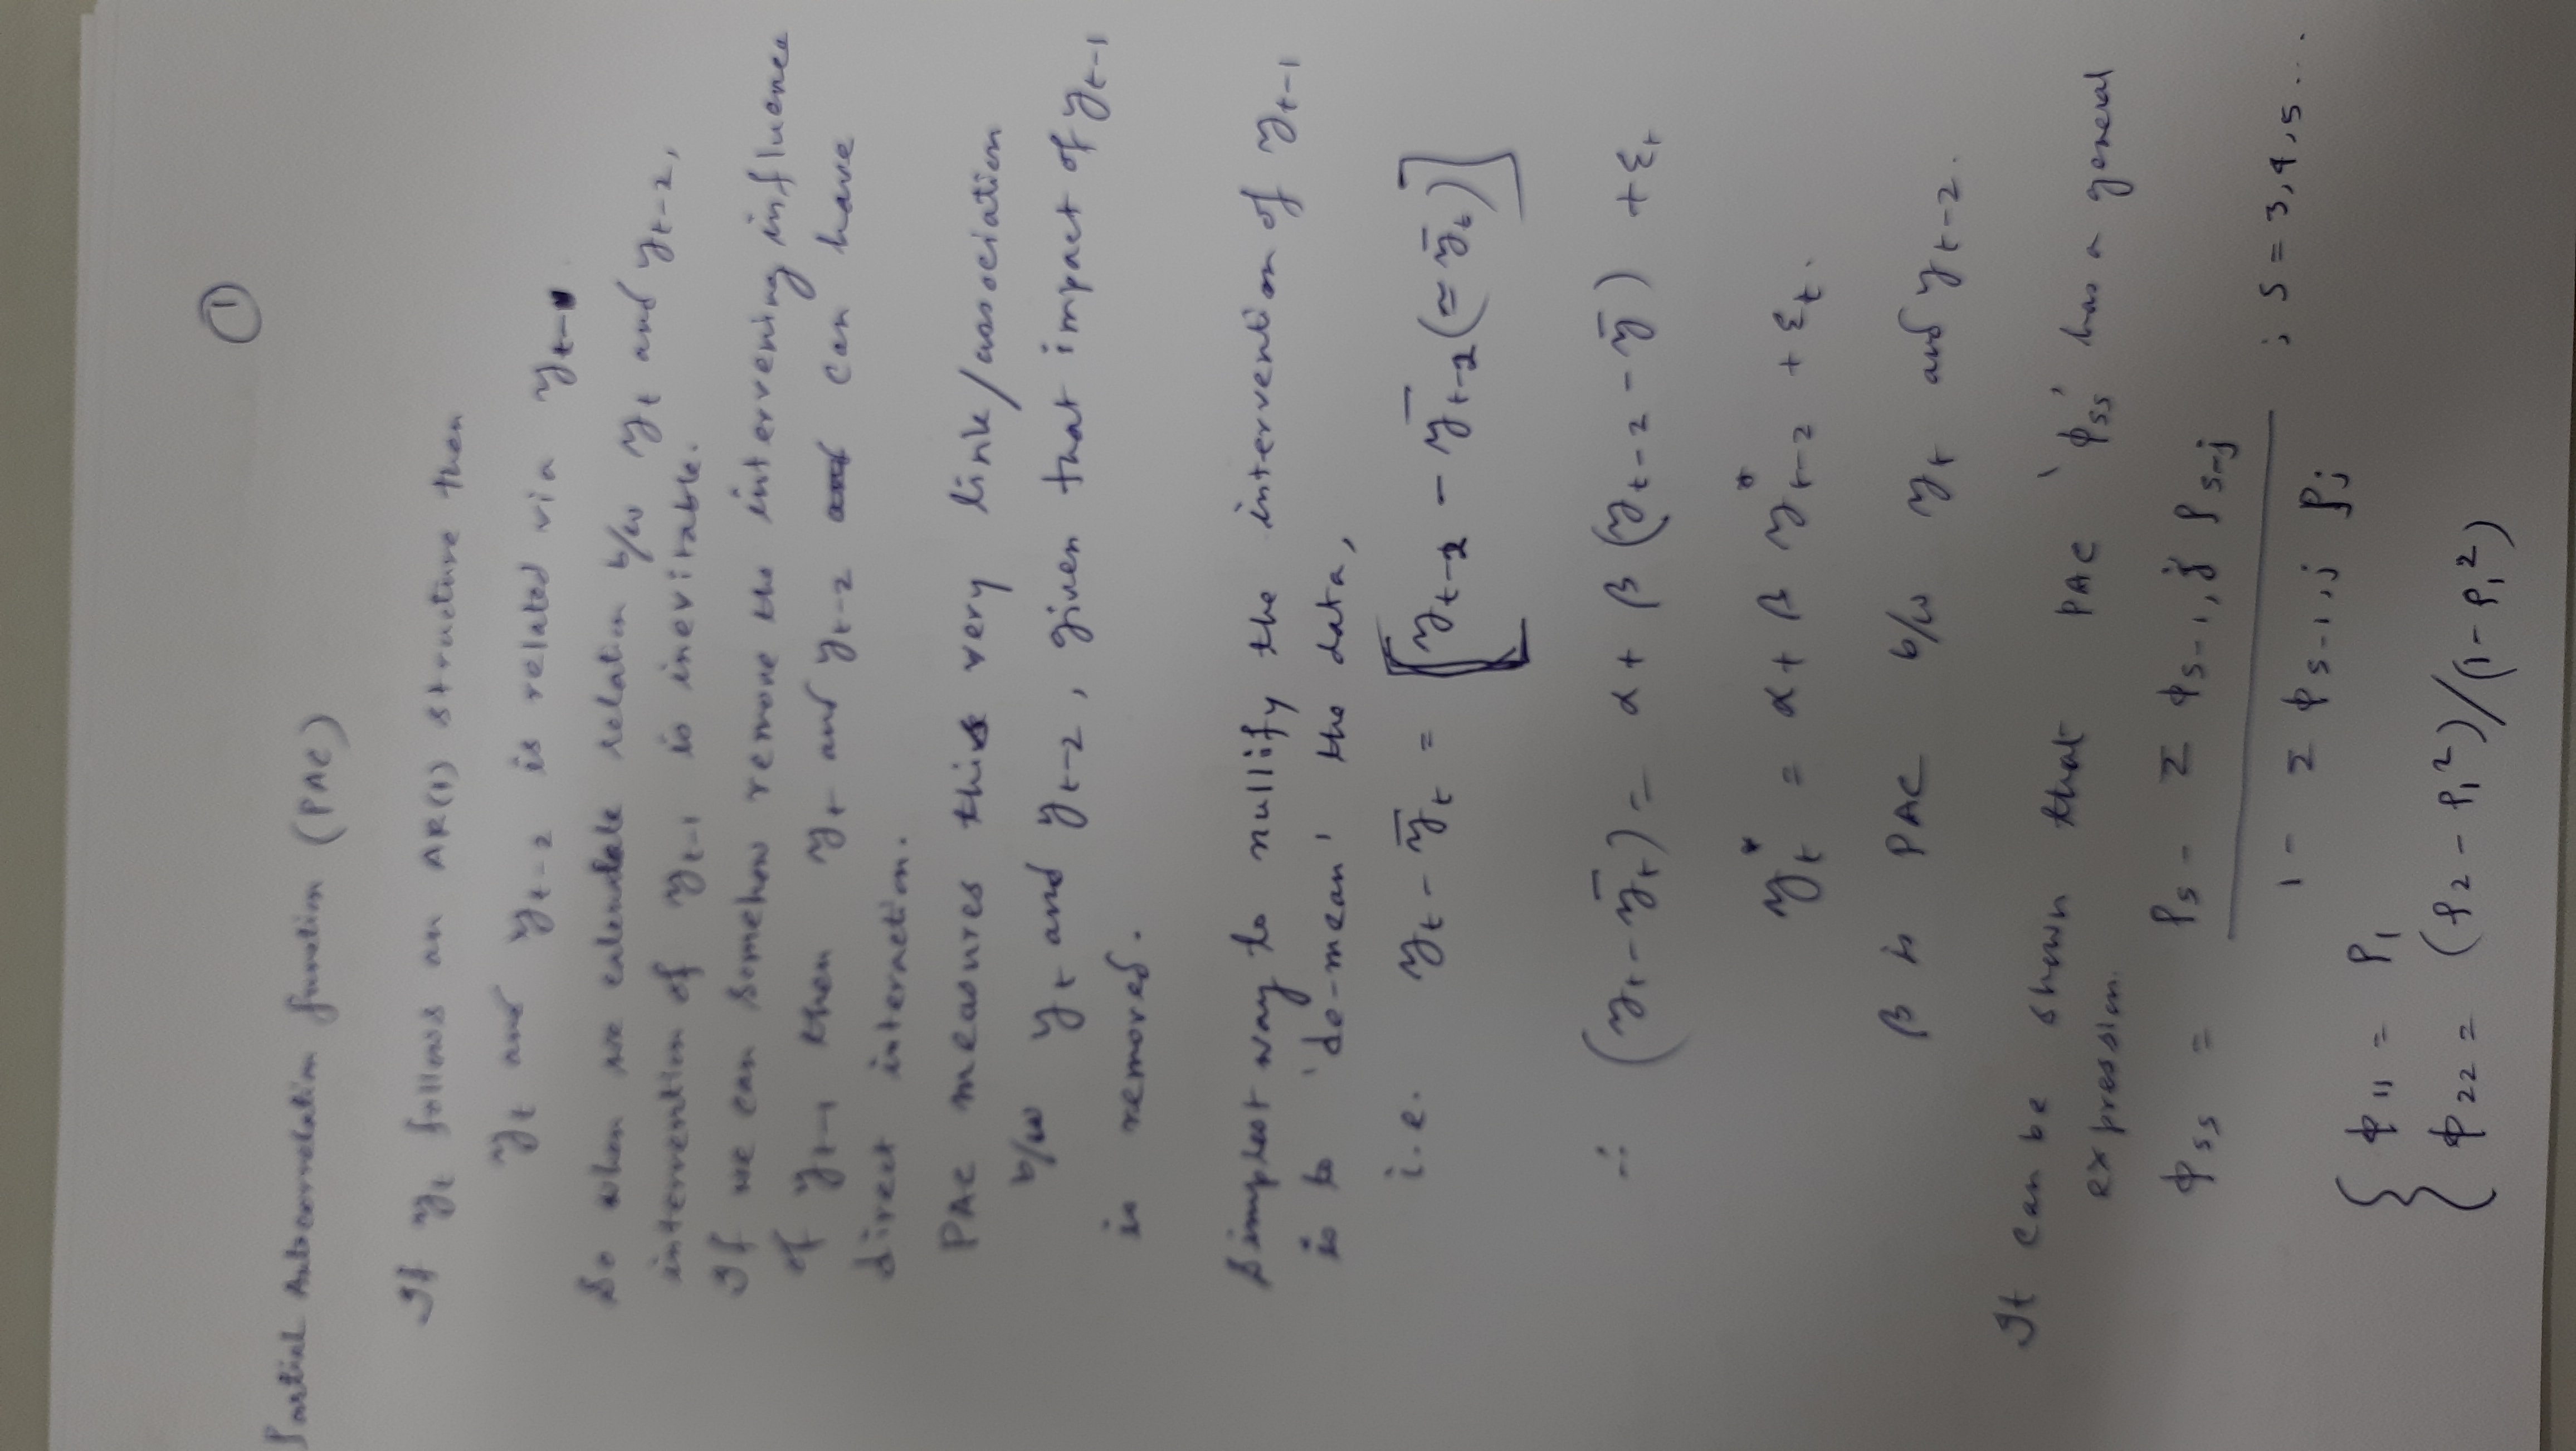 ①
Partial Autocorrelation function (PAC)
If yₜ follows an AR(1) structure then
yₜ and yₜ₋₂ is related via yₜ₋₁
So when we calculate relation b/w yₜ and yₜ₋₂,
intervention of yₜ₋₁ is inevitable.
If we can somehow remove the intervening influence
of yₜ₋₁ then yₜ and yₜ₋₂ can have
direct interaction.
PAC measures this very link/association
b/w yₜ and yₜ₋₂, given that impact of yₜ₋₁
is removed.
Simplest way to nullify the intervention of yₜ₋₁
is to 'de-mean' the data,
i.e. yₜ - ȳₜ = [yₜ₋₂ - ȳₜ₋₂ (≃ ȳₜ)]
∴ (yₜ - ȳₜ) = α + β (yₜ₋₂ - ȳ) + εₜ
yₜ* = α + β y*ₜ₋₂ + εₜ.
β is PAC b/w yₜ and yₜ₋₂.
It can be shown that PAC 'ϕss' has a general
expression.
ϕss = (ρs - Σ ϕs-1,j ρs-j) / (1 - Σ ϕs-1,j ρj) ; S = 3,4,5...
{ ϕ11 = ρ1
ϕ22 = (ρ2 - ρ1²)/(1 - ρ1²)